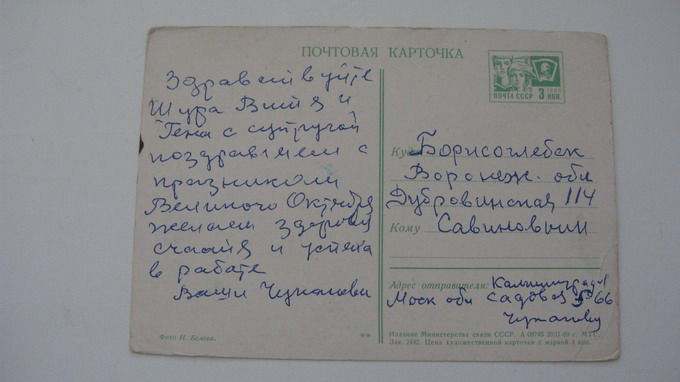 ПОЧТОВАЯ КАРТОЧКА
Здравствуйте
Шура Витя и
Гена с супругой
поздравляем с
празником
Великого Октября
желаем здоровя
счастя и успеха
в работе
Ваши
ПОЧТА СССР 3 КОП.
Куда Борисоглебск
Воронеж. обл
Дубровинская 114
Кому Савиновым
Адрес отправителя: Калининград
Моск обл Садовая 66
Фото И. Белова.
Издание Министерства связи СССР. А 09745 20/II-69 г. МТГ.
Зак. 2442. Цена художественной карточки с маркой 4 коп.